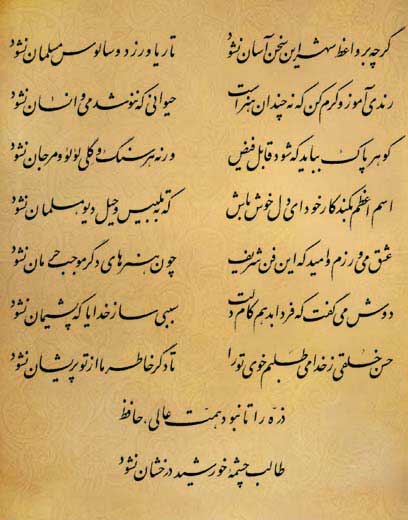 گرچه بر واعظ شهر این سخن آسان نشود تا ریا ورزد و سالوس مسلمان نشود
رندی آموز و کرم کن که نه چندان هنر است حیوانی که ننوشد می و انسان نشود
گوهر پاک بباید که شود قابل فیض ورنه هر سنگ و گلی لؤلؤ و مرجان نشود
اسم اعظم بکند کار خود ای دل خوش باش که به تلبیس و حیل دیو مسلمان نشود
عشق می ورزم و امید که این فن شریف چون هنرهای دگر موجب حرمان نشود
دوش می گفت که فردا بدهم کام دلت سببی ساز خدایا که پشیمان نشود
حسن خلقی ز خدا می طلبم خوی تو را تا دگر خاطر ما از تو پریشان نشود
ذره را تا نبود همت عالی، حافظ
طالب چشمه خورشید درخشان نشود